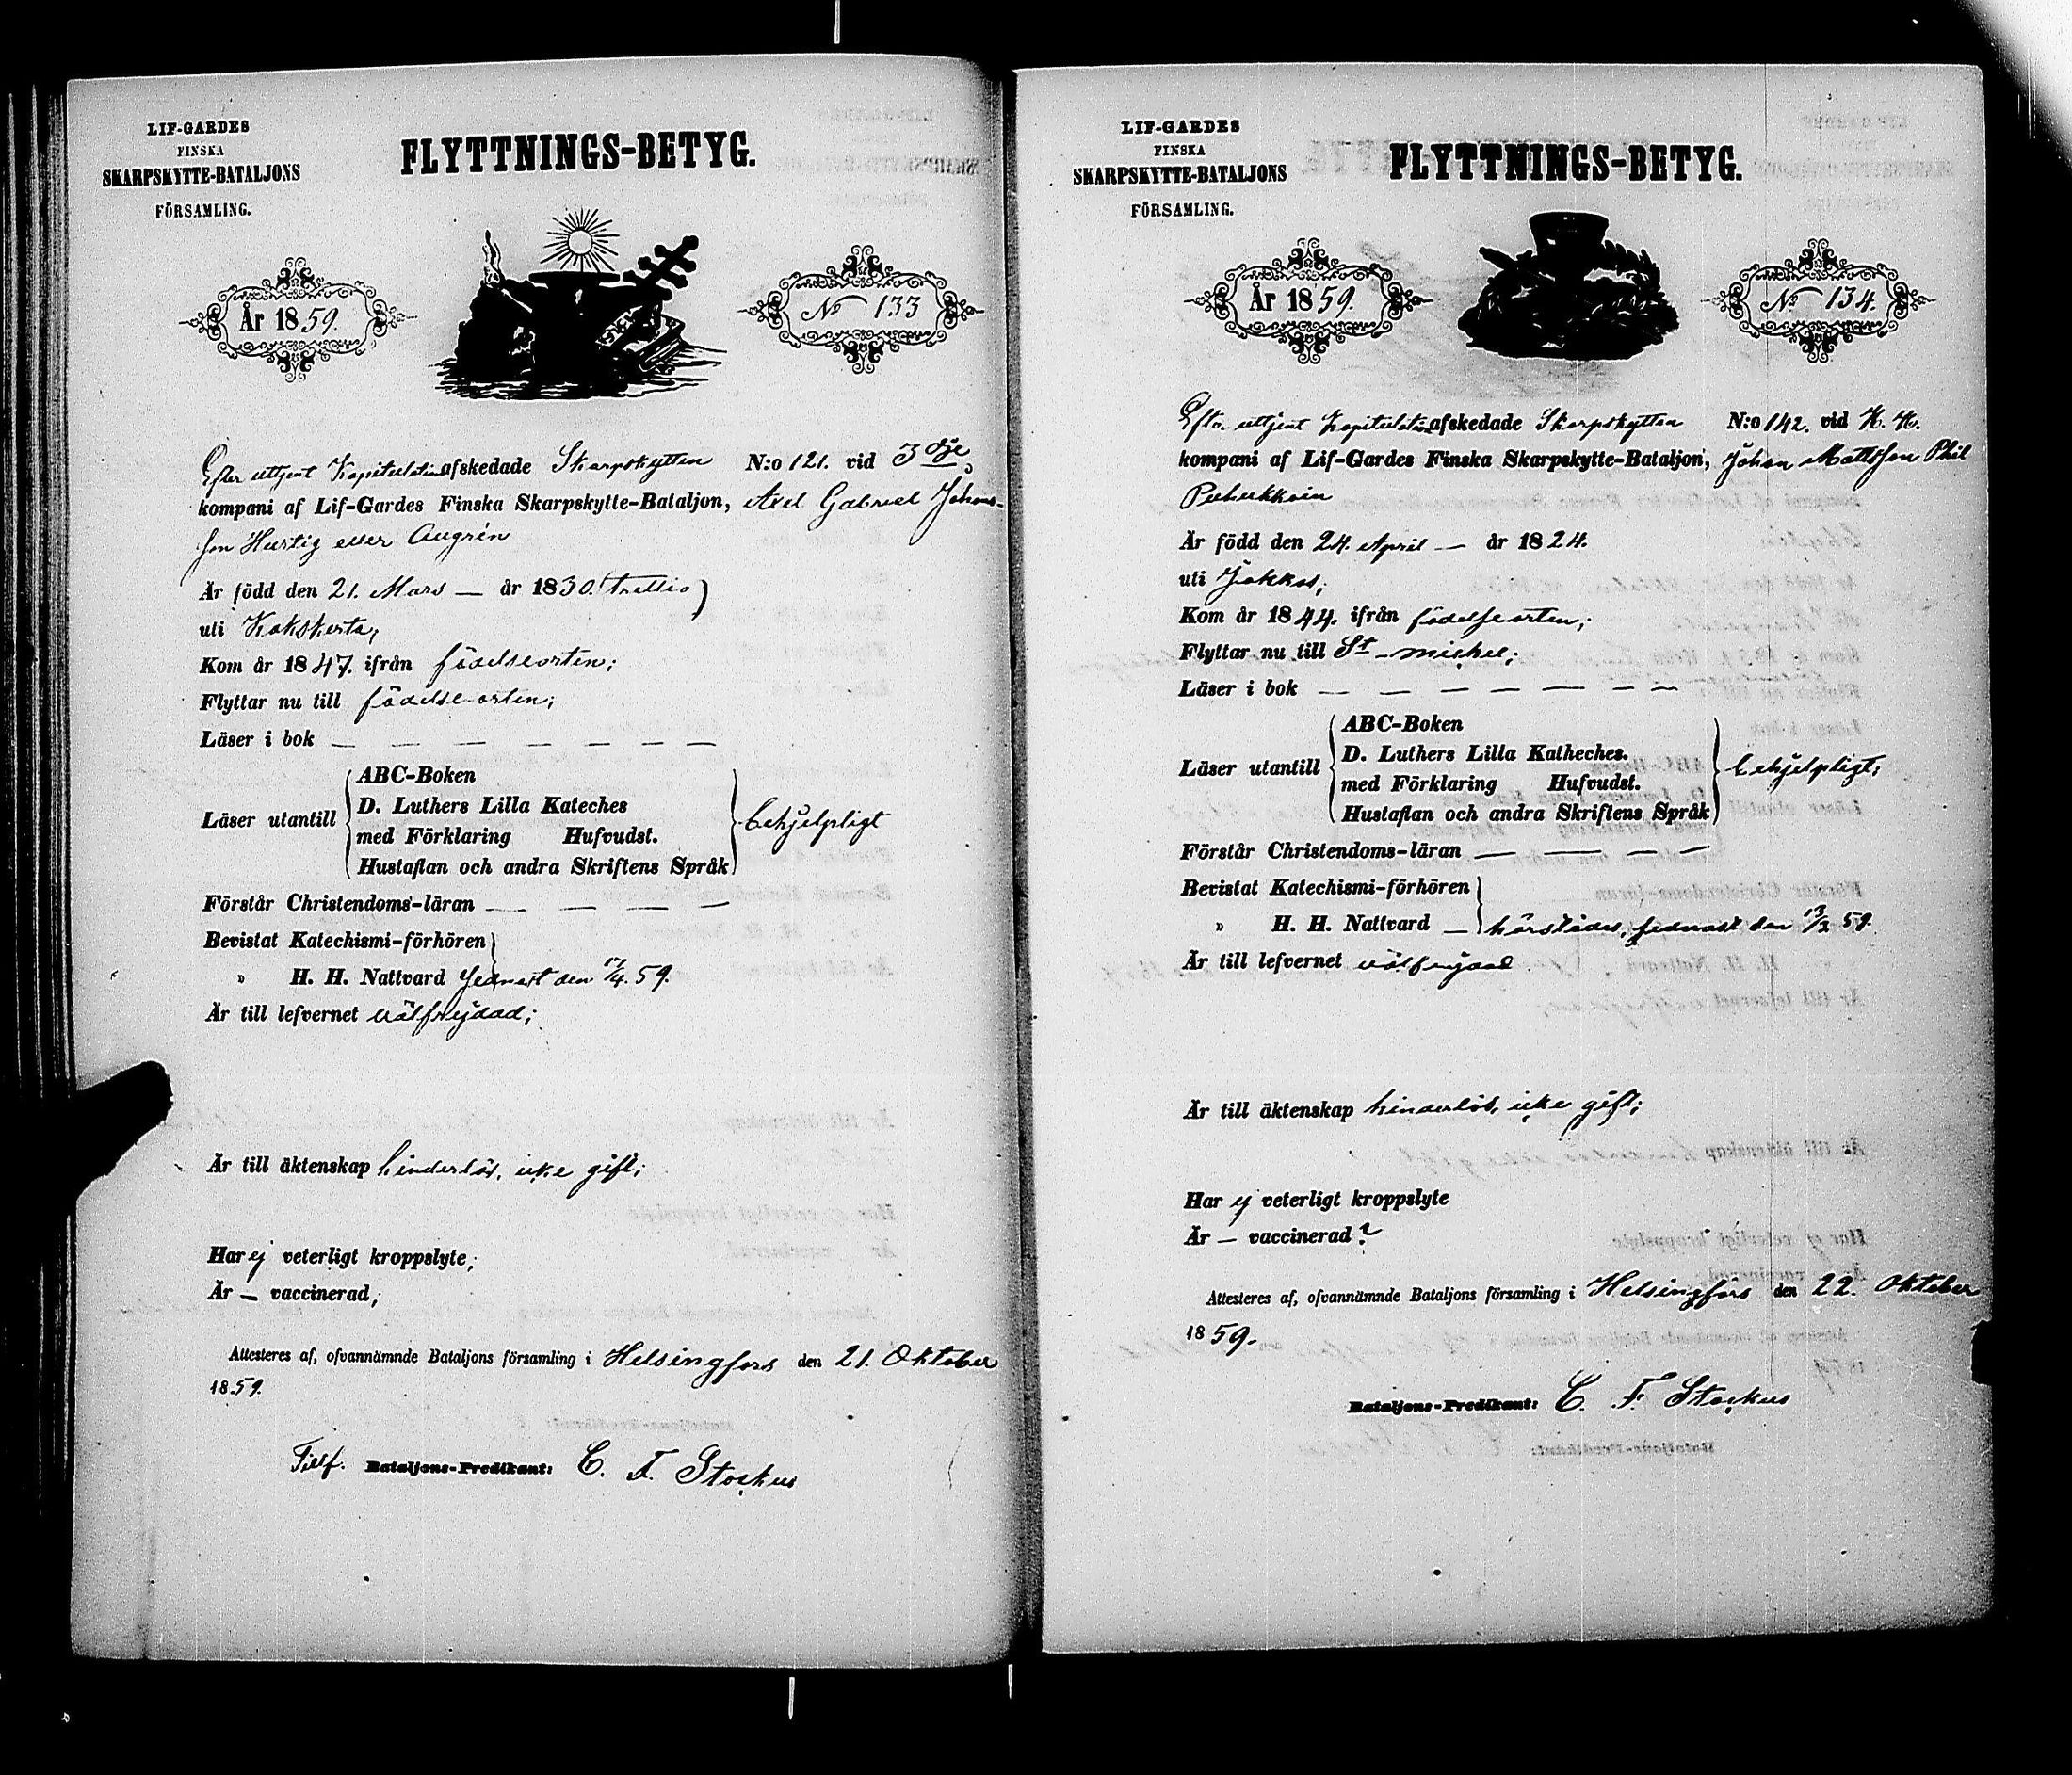 LIF-GARDES
FINSKA
SKARPSKYTTE-BATALJONS
FÖRSAMLING.
FLYTTNINGS-BETYG.
År 1859.
No 133
Efter uttjent Kapitulation afskedade Skarpskytten N:o 121. vid 3dje
kompani af Lif-Gardes Finska Skarpskytte-Bataljon, Axel Gabriel Johans-
son Hurtig eller Augrén
Är född den 21. Mars — år 1830. (trettio)
uti Kakskerta;
Kom år 1847. ifrån födelseorten;
Flyttar nu till födelse-orten;
Läser i bok — — — — — —
Läser utantill
ABC-Boken
D. Luthers Lilla Kateches
med Förklaring Hufvudst.
Hustaflan och andra Skriftens Språk
behjelpligt
Förstår Christendoms-läran — — — —
Bevistat Katechismi-förhören
" H. H. Nattvard sednast den 17/4. 59.
Är till lefvernet välfrejdad;
Är till äktenskap hinderlös, icke gift;
Har ej veterligt kroppslyte;
Är — vaccinerad;
Attesteras af, ofvannämnde Bataljons församling i Helsingfors den 21. Oktober
1859.
Tillf. Bataljons-Predikant: C. F. Stockus
LIF-GARDES
FINSKA
SKARPSKYTTE-BATALJONS
FÖRSAMLING.
FLYTTNINGS-BETYG.
År 1859.
No 134.
Eftr. uttjent Kapitulation afskedade Skarpskytten N:o 142. vid H. K.
kompani af Lif-Gardes Finska Skarpskytte-Bataljon, Johan Mattsson Phil
Puhukkoin
Är född den 24. April — år 1824.
uti Jokkas;
Kom år 1844. ifrån födelseorten;
Flyttar nu till St-michel;
Läser i bok — — — — — —
Läser utantill
ABC-Boken
D. Luthers Lilla Katheches.
med Förklaring Hufvudst.
Hustaflan och andra Skriftens Språk
behjelpligt;
Förstår Christendoms-läran — — — —
Bevistat Katechismi-förhören
" H. H. Nattvard — härstädes, sednast den 13/3 59.
Är till lefvernet välfrejdad
Är till äktenskap hinderlös, icke gift;
Har ej veterligt kroppslyte
Är — vaccinerad?
Attesteras af, ofvannämnde Bataljons församling i Helsingfors den 22. Oktober
1859.
Bataljons-Predikant: C. F. Stockus